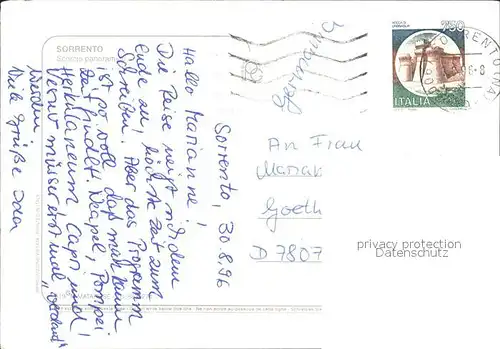 SORRENTO
Scorcio panoramico
Sorrento, 30.8.96
Hallo Marianne!
Die Reise neigt sich dem
Ende zu! Höchste Zeit zum
Schreiben. Aber das Programm
ist so voll, daß man kaum
Zeit findet. Neapel, Pompei
Herkulaneum Capri und!
Vesuv müssen erst mal „verdaut"
werden.
Viele Grüße
Germania
750
ITALIA
SORRENTO
An Frau
Goeth
D 7807
privacy protection
Datenschutz